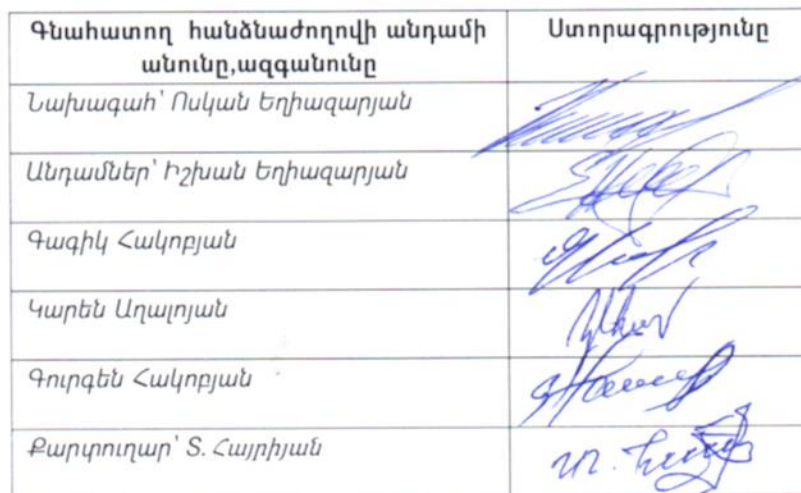 Գնահատող հանձնաժողովի անդամի Ստորագրությունը
անունը,ազգանունը
Նախագահ՝ Ոսկան Եղիազարյան
Անդամներ՝ Իշխան Եղիազարյան
Գագիկ Հակոբյան
Կարեն Աղալոյան
Գուրգեն Հակոբյան
Քարտուղար՝ Տ. Հայրիյան